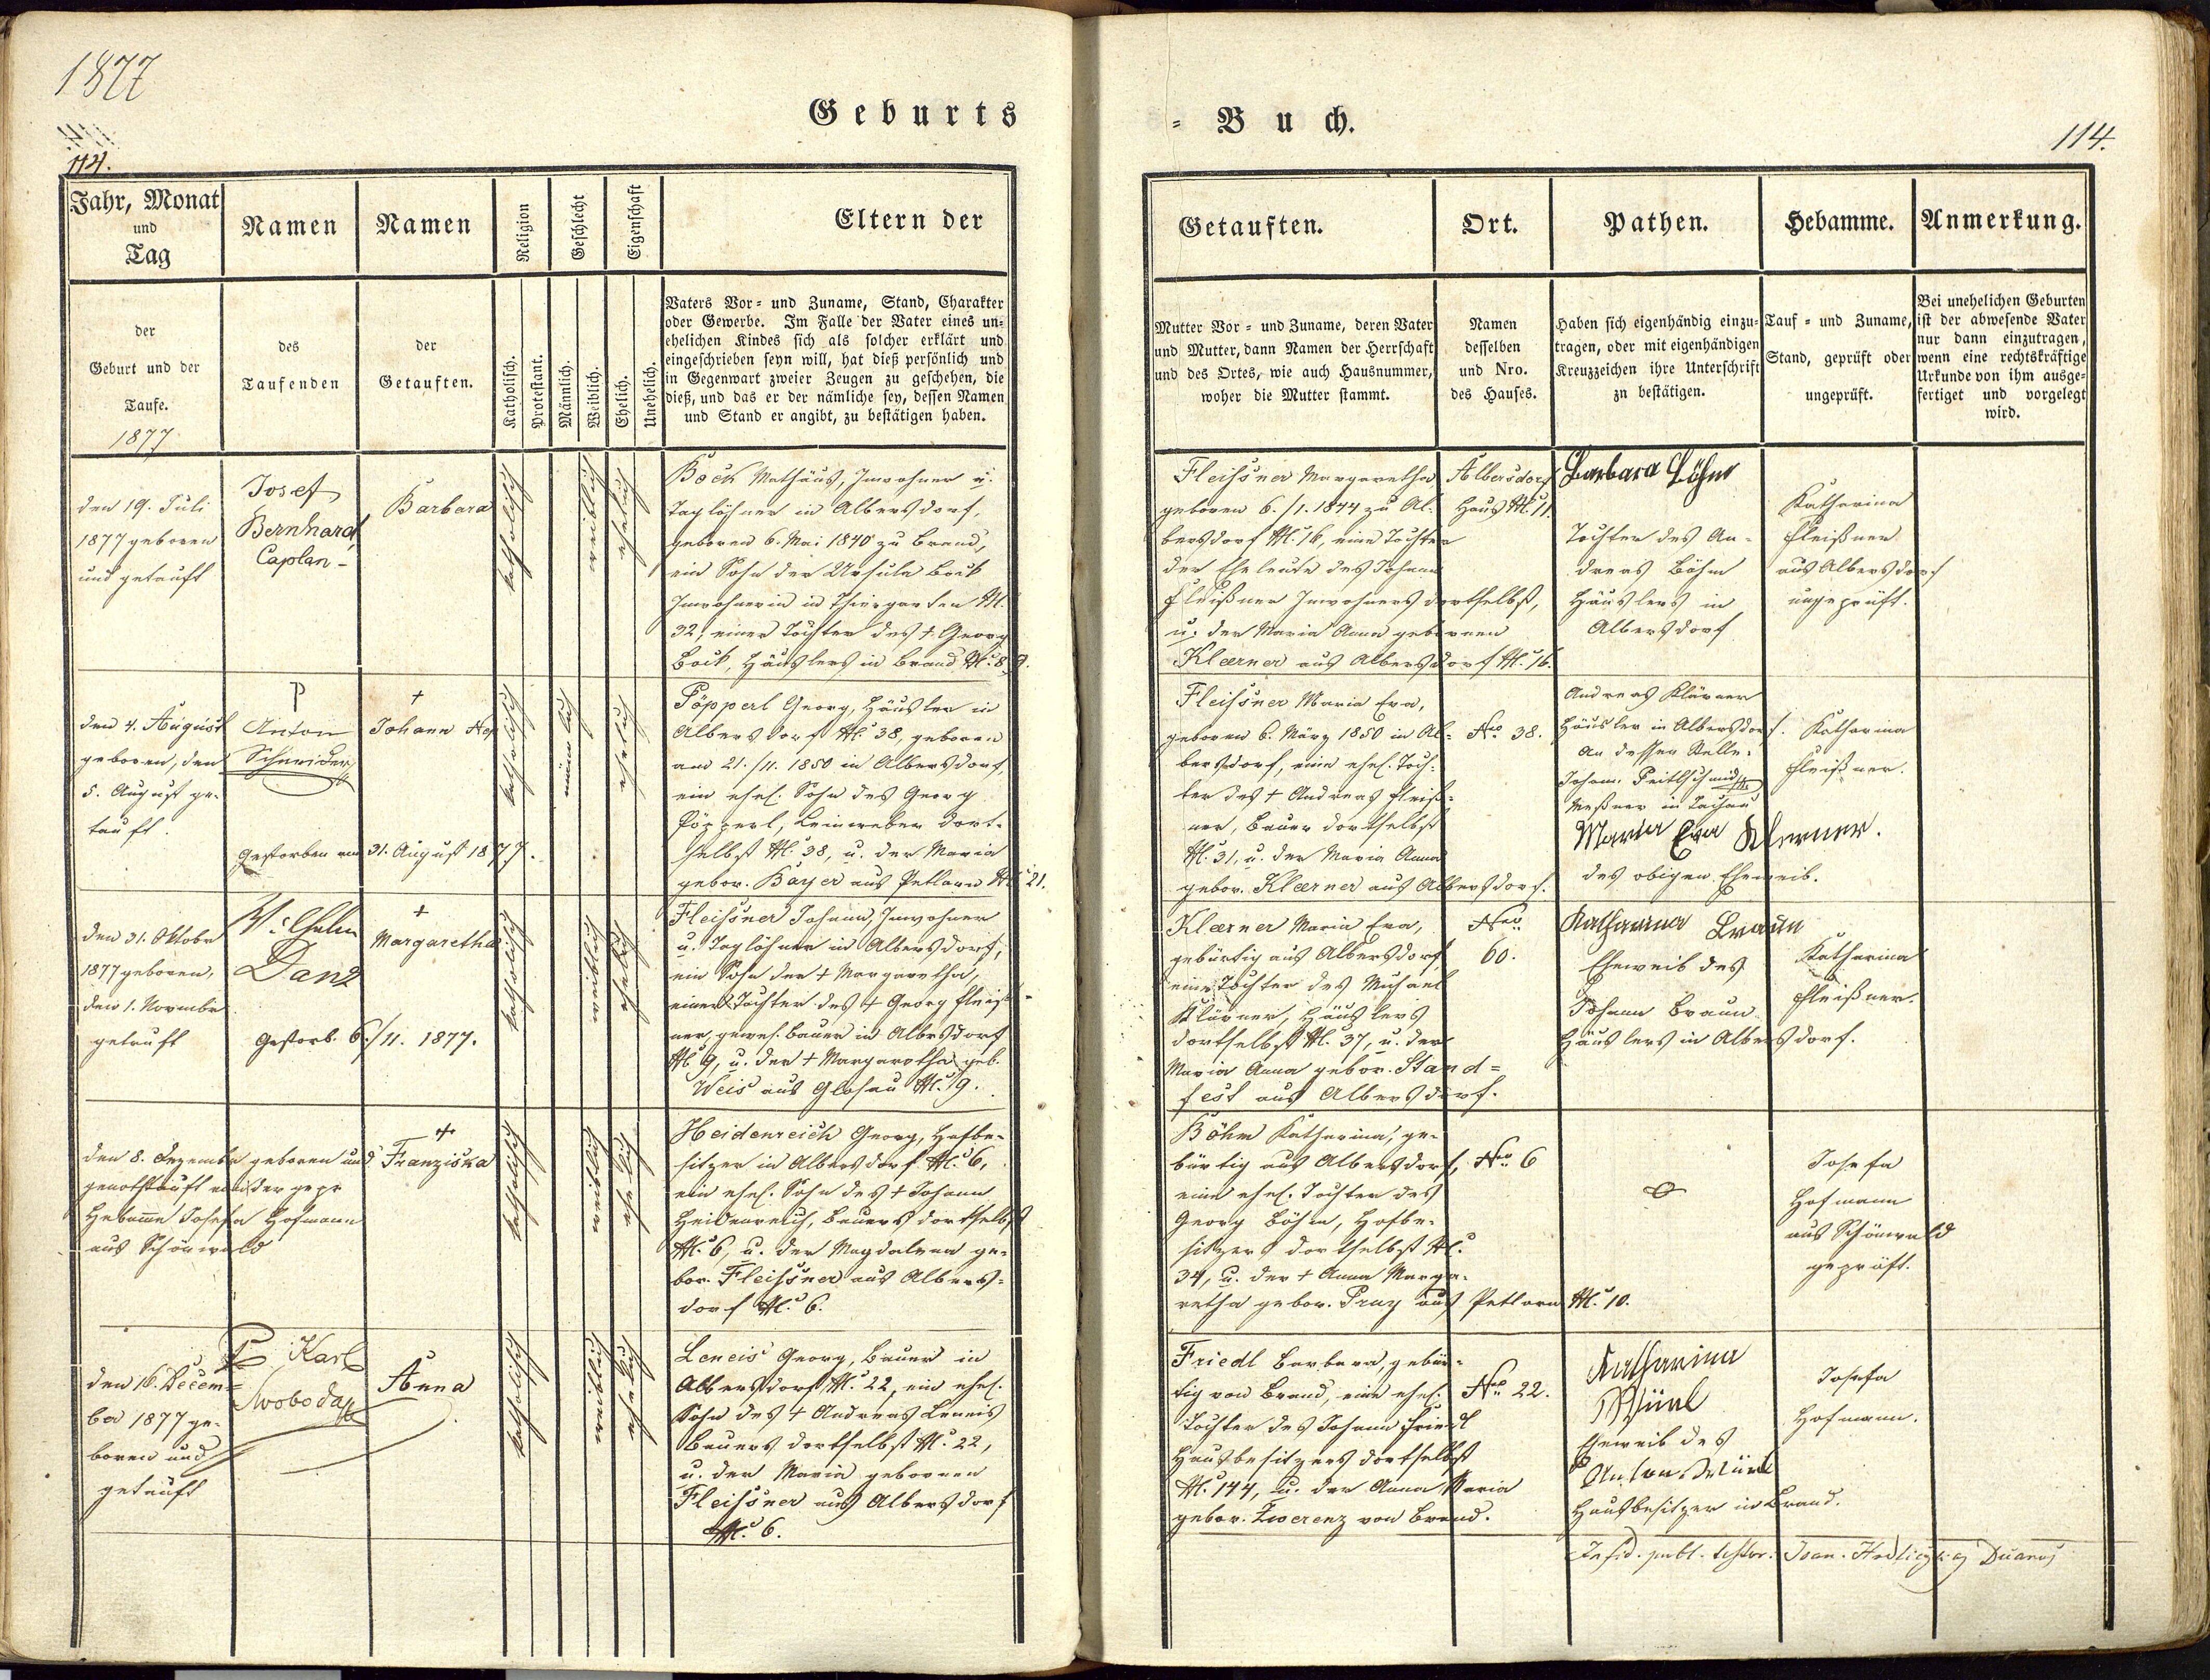 1877
Geburts
= Buch.
114.
114.
Jahr, Monat
und
Tag
Namen
Namen
Religion
Geschlecht
Eigenschaft
Eltern der
Getauften.
Ort.
Pathen.
Hebamme.
Anmerkung.
der
Geburt und der
Taufe.
1877
des
Taufenden
der
Getauften.
Katholisch.
Protestant.
Männlich.
Weiblich.
Ehelich.
Unehelich.
Vaters Vor= und Zuname, Stand, Charakter
oder Gewerbe. Im Falle der Vater eines un=
ehelichen Kindes sich als solcher erklärt und
eingeschrieben seyn will, hat dieß persönlich und
in Gegenwart zweier Zeugen zu geschehen, die
dieß, und das er der nämliche sey, dessen Namen
und Stand er angibt, zu bestätigen haben.
Mutter Vor = und Zuname, deren Vater
und Mutter, dann Namen der Herrschaft
und des Ortes, wie auch Hausnummer,
woher die Mutter stammt.
Namen
desselben
und Nro.
des Hauses.
Haben sich eigenhändig einzu=
tragen, oder mit eigenhändigen
Kreuzzeichen ihre Unterschrift
zn bestätigen.
Tauf = und Zuname,
Stand, geprüft oder
ungeprüft.
Bei unehelichen Geburten
ist der abwesende Vater
nur dann einzutragen,
wenn eine rechtskräftige
Urkunde von ihm ausge=
fertiget und vorgelegt
wird.
den 19. Juli
1877 geboren
und getauft
Josef
Bernhard
Caplan
Barbara
katholisch
weiblich
ehelich
Bock Mathäus, Inwohner u.
Taglöhner in Albersdorf,
geboren 6. Mai 1840 zu Brand,
ein Sohn der Ursula Bock
Inwohnerin in Thiergarten N.
32, einer Tochter des † Georg
Bock, Häuslers in Brand N. 89.
Fleissner Margaretha
geboren 6./1. 1844 zu Al=
bersdorf N. 16, eine Tochter
der Eheleute des Johann
Fleißner Inwohners dortselbst,
u. der Maria Anna geborenen
Klaerner aus Albersdorf N. 16.
Albersdorf
Haus N. 11.
Barbara Böhm
Tochter des An=
dreas Böhm
Häuslers in
Albersdorf
Katharina
Fleißner
aus Albersdorf
ungeprüft.
den 4. August
geboren, den
5. August ge=
tauft.
P
Anton
Schneider
†
Johann Nep
Gestorben am 31. August 1877.
katholisch
männlich
ehelich
Pöpperl Georg, Häusler in
Albersdorf N. 38, geboren
am 21./11. 1850 in Albersdorf,
ein ehel. Sohn des Georg
Pöpperl, Leinweber dort=
selbst N. 38, u. der Maria
gebor. Bayer aus Petlarn N. 21.
Fleissner Maria Eva,
geboren 6. März 1850 in Al=
bersdorf, eine ehel. Toch=
ter des † Andreas Fleiß=
ner, Bauer dortselbst
N. 31, u. der Maria Anna
gebor. Klaerner aus Albersdorf.
Nro. 38.
Andreas Klärner
Häusler in Albersdorf.
An dessen Stelle:
Meßner in Tachau
Maria Eva Klerner.
des obigen Eheweib.
Katharina
Fleißner.
den 31. Oktobr
1877 geboren,
den 1. Novembr
getauft
Wilhelm
Danz
†
Margaretha
Gestorb. 6./11. 1877.
katholisch
weiblich
ehelich
Fleissner Johann, Inwohner
u. Taglöhner in Albersdorf,
ein Sohn der † Margaretha,
einer Tochter des † Georg Fleiß=
ner, gewes. Bauer in Albersdorf
N. 9, u. der † Margaretha geb.
Weis aus Glosau N. 9.
Klaerner Maria Eva,
gebürtig aus Albersdorf
eine Tochter des Michael
Klärner, Häuslers
dortselbst N. 37, u. der
Maria Anna gebor. Stand=
fest aus Albersdorf.
Nro.
60.
Katharina Braun
Eheweib des
Johann Braun
Häuslers in Albersdorf.
Katharina
Fleißner.
den 8. Dezember geboren und
genothtauft von der gepr
Hebamme Josefa Hofmann
aus Schönwald
†
Franziska
katholisch
weiblich
ehelich
Heidenreich Georg, Hofbe=
sitzer in Albersdorf N. 6,
ein ehel. Sohn des † Johann
Heidenreich, Bauers dortselbst
N. 6, u. der Magdalena ge=
bor. Fleissner aus Albers=
dorf N. 6.
Böhm Katharina, ge=
bürtig aus Albersdorf,
eine ehel. Tochter des
Georg Böhm, Hofbe=
sitzers dortselbst N.
34, u. der † Anna Marga=
retha gebor. Pruy aus Petlarn N. 10.
Nro. 6
Josefa
Hofmann
aus Schönwald
geprüft.
den 16. Decem=
ber 1877 ge=
boren und
getauft
P. Karl
Swoboda
Anna
katholisch
weiblich
ehelich
Leneis Georg, Bauer in
Albersdorf N. 22, ein ehel.
Sohn des † Andreas Leneis
Bauers dortselbst N. 22,
u. der Maria geborenen
Fleissner aus Albersdorf
N. 6.
Friedl Barbara, gebür=
tig von Brand, eine ehel.
Tochter des Johann Friedl
Hausbesitzers dortselbst
N. 144, u. der Anna Maria
gebor. Zwerenz von Brand.
Nro. 22.
Katharina
Eheweib des
Anton
Hausbesitzer in Brand.
Josefa
Hofmann.